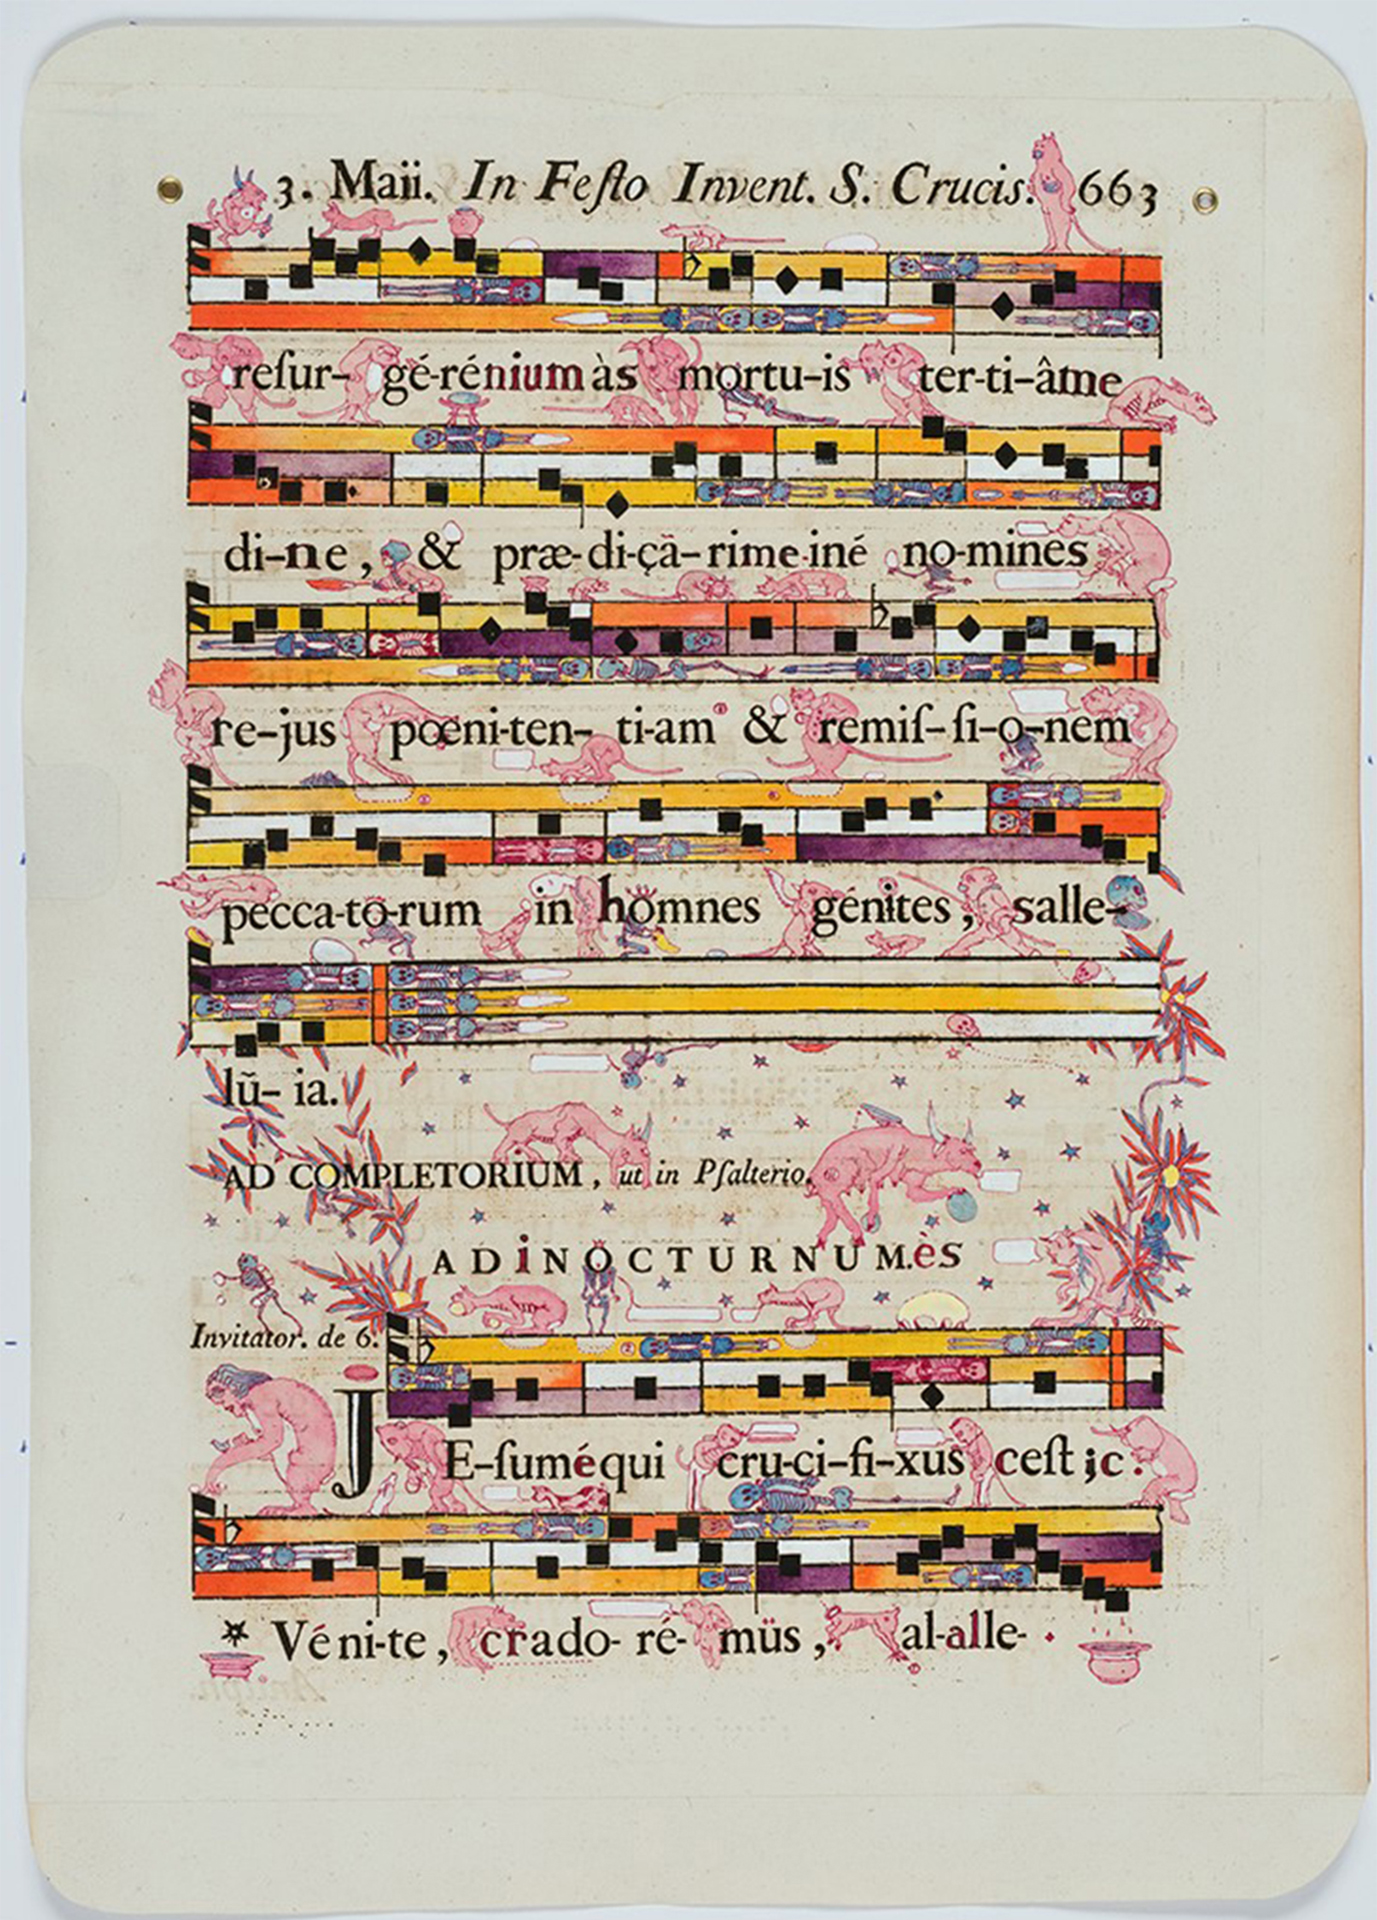 3. Maii. In Feſto Invent. S. Crucis. 663
reſur- gé-rénium às mortu-is ter-ti-âme
di-ne, & præ-di-çã-rime-iné no-mines
re-jus pœni-ten- ti-am & remiſ-ſi-o-nem
pecca-to-rum in homnes génites, salle-
lũ- ia.
AD COMPLETORIUM, ut in Pſalterio.
ADiNOCTURNUM.ès
Invitator. de 6.
JE-ſuméqui cru-ci-fi-xus ceſt;c.
* Véni-te, crado- ré- müs, al-alle-